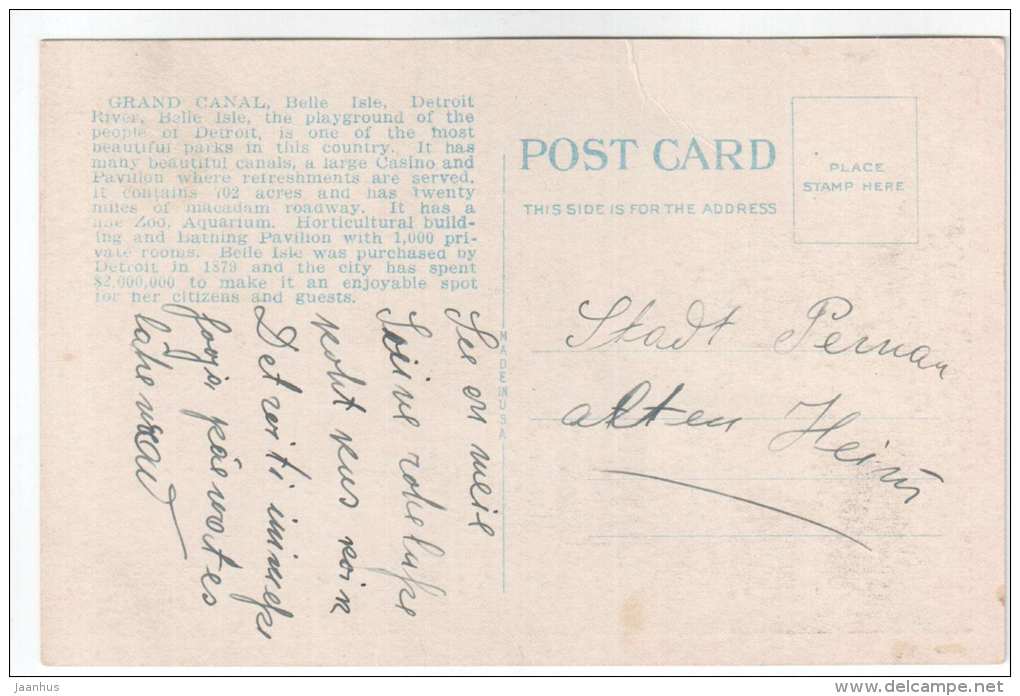 GRAND CANAL, Belle Isle, Detroit
River, Belle Isle, the playground of the
people of Detroit, is one of the most
beautiful parks in this country. It has
many beautiful canals, a large Casino and
Pavilion where refreshments are served.
It contains 702 acres and has twenty
miles of macadam roadway. It has a
fine Zoo, Aquarium. Horticultural build-
ing and Bathing Pavilion with 1,000 pri-
vate rooms. Belle Isle was purchased by
Detroit in 1879 and the city has spent
$2,000,000 to make it an enjoyable spot
for her citizens and guests.
See on meie
rohelisse
koht kus koik
Detroiti inimesi
sooja päewates
lähewad
MADE IN USA
POST CARD
THIS SIDE IS FOR THE ADDRESS
PLACE
STAMP HERE
Stadt Pernau
alten Heim
jaanhus
www.delcampe.net